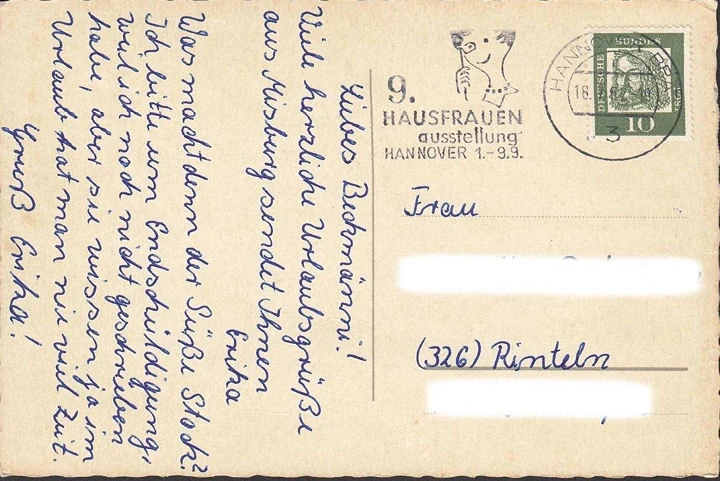 Liebes Bechmänni!
Viele herzliche Urlaubsgrüße
aus Misburg sendet Ihnen
Erika
Was macht denn der Süße Stock?
Ich bitte um Endschuldigung,
weil ich noch nicht geschrieben
habe, aber sie wissen ja im
Urlaub hat man nie viel Zeit.
Gruß Erika!
9.
HAUSFRAUEN
ausstellung
HANNOVER 1.-9.9.
HANNOVER
18.
3
DEUTSCHE BUNDESPOST
10
Frau
(326) Rinteln